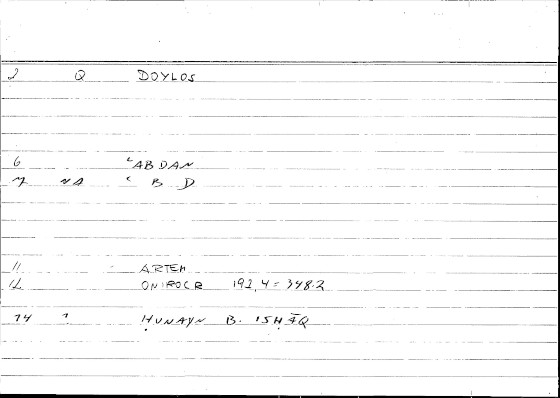 2 Q DOYLOS
6 ʿABDAN
7 NA ʿ B D
11 ARTEM
12 ONIROCR 191,4 = 348.2
14 1 ḤUNAYN B. ʾISḤĀQ